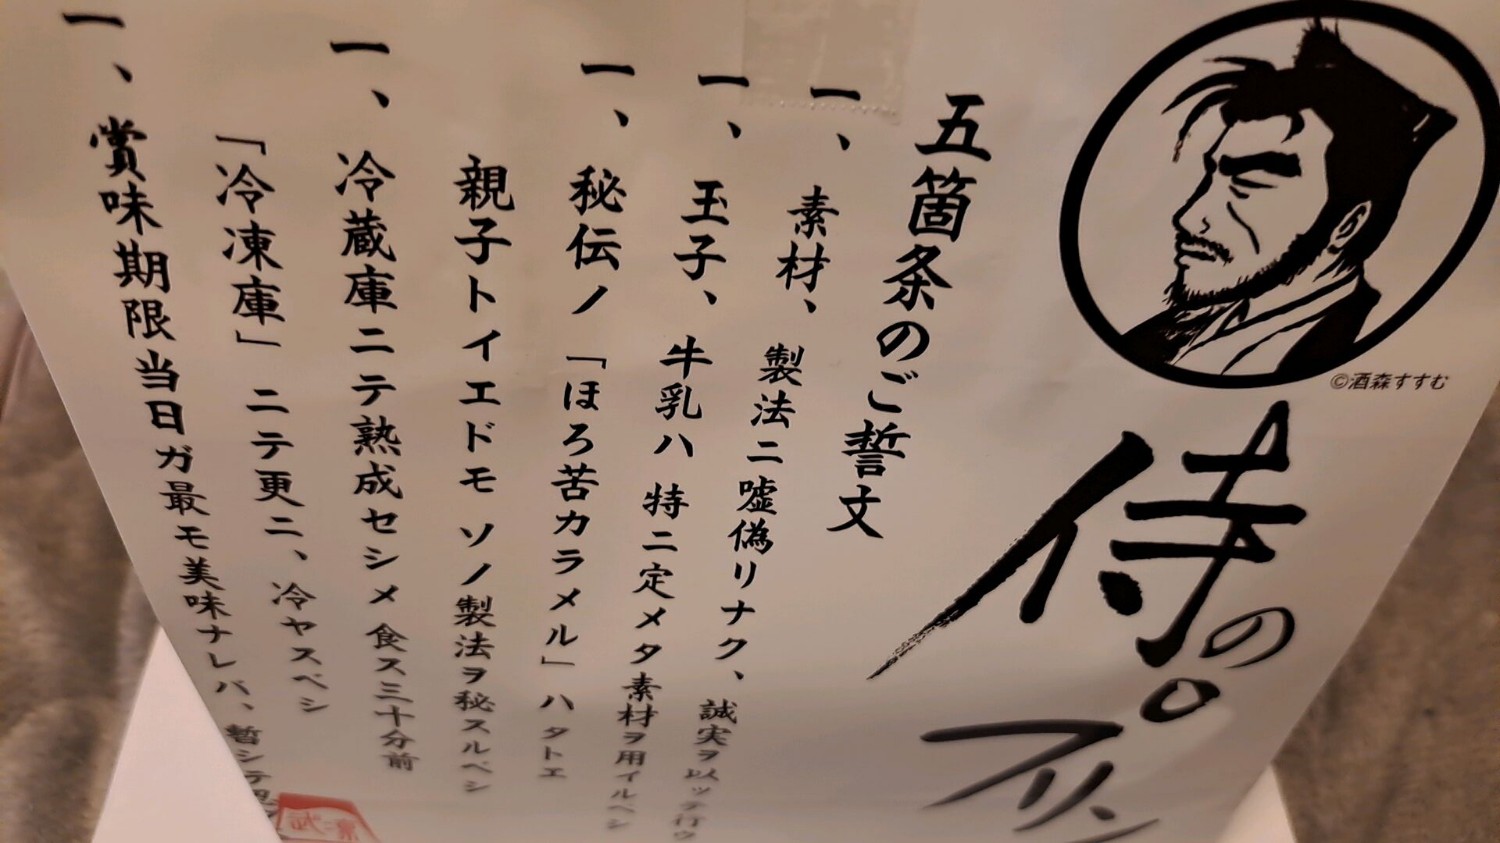 ©酒森すすむ
侍のプリン
五箇条のご誓文
一、素材、製法ニ嘘偽リナク、誠実ヲ以ッテ行ウ
一、玉子、牛乳ハ特ニ定メタ素材ヲ用イルベシ
一、秘伝ノ「ほろ苦カラメル」ハタトエ
親子トイエドモソノ製法ヲ秘スルベシ
一、冷蔵庫ニテ熟成セシメ食ス三十分前
「冷凍庫」ニテ更ニ、冷ヤスベシ
一、賞味期限当日ガ最モ美味ナレバ、暫シテ